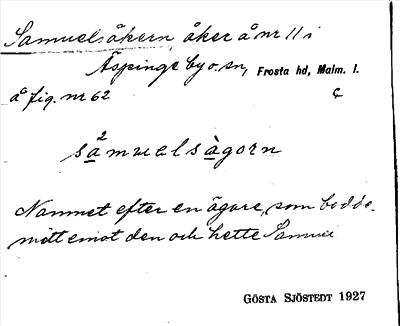 Samuelsåkern, åker å nr 11 i
Äspinge by o. sn, Frosta hd, Malm. l.
å fig. nr 62
2
sạmuelsàgorn
Namnet efter en ägare, som bodde
mitt emot den och hette Samuel
GÖSTA SJÖSTEDT 1927